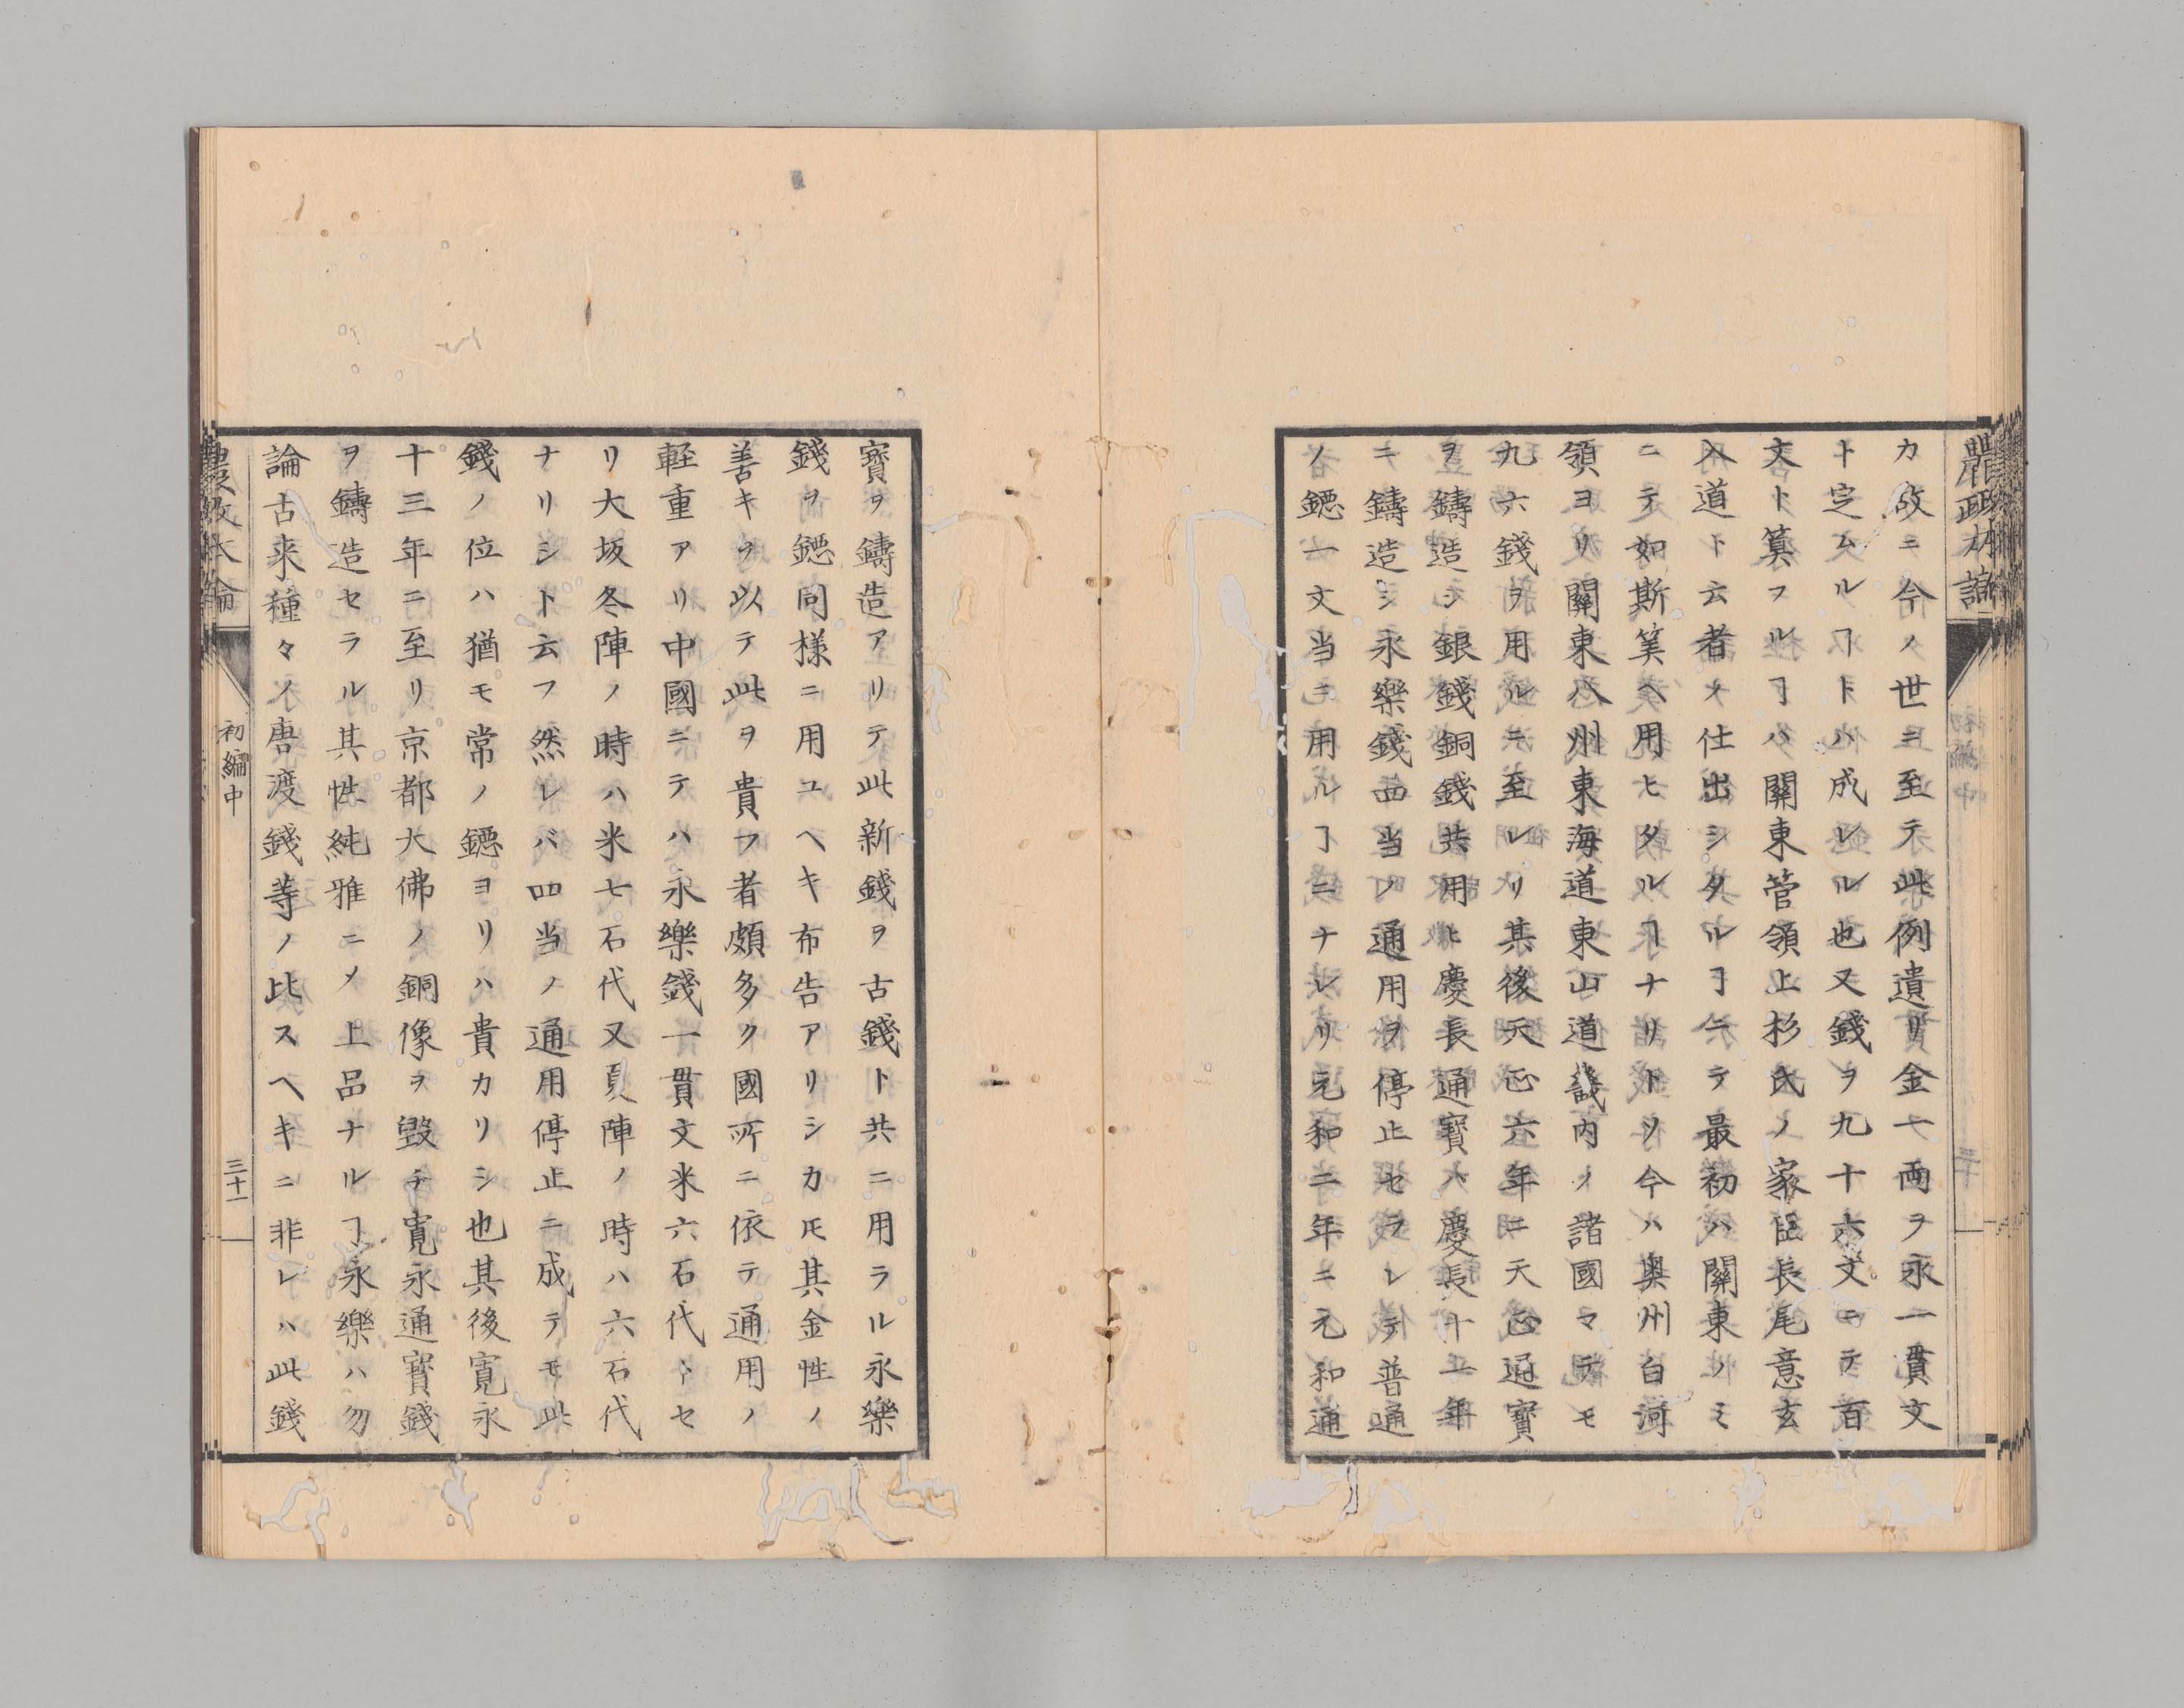 農政本論
カ故ニ今ノ世ニ至テ此例遺リ金一両ヲ永一貫文
ト定ムルヿトハ成レル也又錢ヲ九十六文ニテ百
文ト算フルヿハ關東管領上杉氏ノ家臣長尾意玄
入道ト云者ノ仕出シタルヿニテ最初ハ關東ノミ
ニテ如斯筭ヘ用ヒタルヿナリトソ今ハ奥州白河
領ヨリ關東八州東海道東山道畿内ノ諸國マテモ
九六錢ヲ用ルニ至レリ其後天正六年ニ天正通寳
ヲ鑄造シ銀錢銅錢共用ヒ慶長通寳ハ慶長十一年
ニ鑄造シ永樂錢四当ノ通用ヲ停止セラレテ普通
ノ鐚一文当ニ用ルヿニナレリ元和二年ニ元和通
寳ヲ鑄造アリテ此新錢ヲ古錢ト共ニ用ラル永樂
錢ヲ鐚同様ニ用ユヘキ布告アリシカ𪜈其金性ノ
善キヲ以テ此ヲ貴フ者頗多ク國所ニ依テ通用ノ
軽重アリ中國ニテハ永樂錢一貫文米六石代トセ
リ大坂冬陣ノ時ハ米七石代又夏陣ノ時ハ六石代
ナリシト云フ然レバ四当ノ通用停止ニ成テモ此
錢ノ位ハ猶モ常ノ鐚ヨリハ貴カリシ也其後寛永
十三年ニ至リ京都大佛ノ銅像ヲ毀チ寛永通寳錢
ヲ鑄造セラル其性純雅ニメ上品ナルヿ永樂ハ勿
論古来種々ノ唐渡錢等ノ比スヘキニ非レハ此錢
農政本論
初編中
三十一